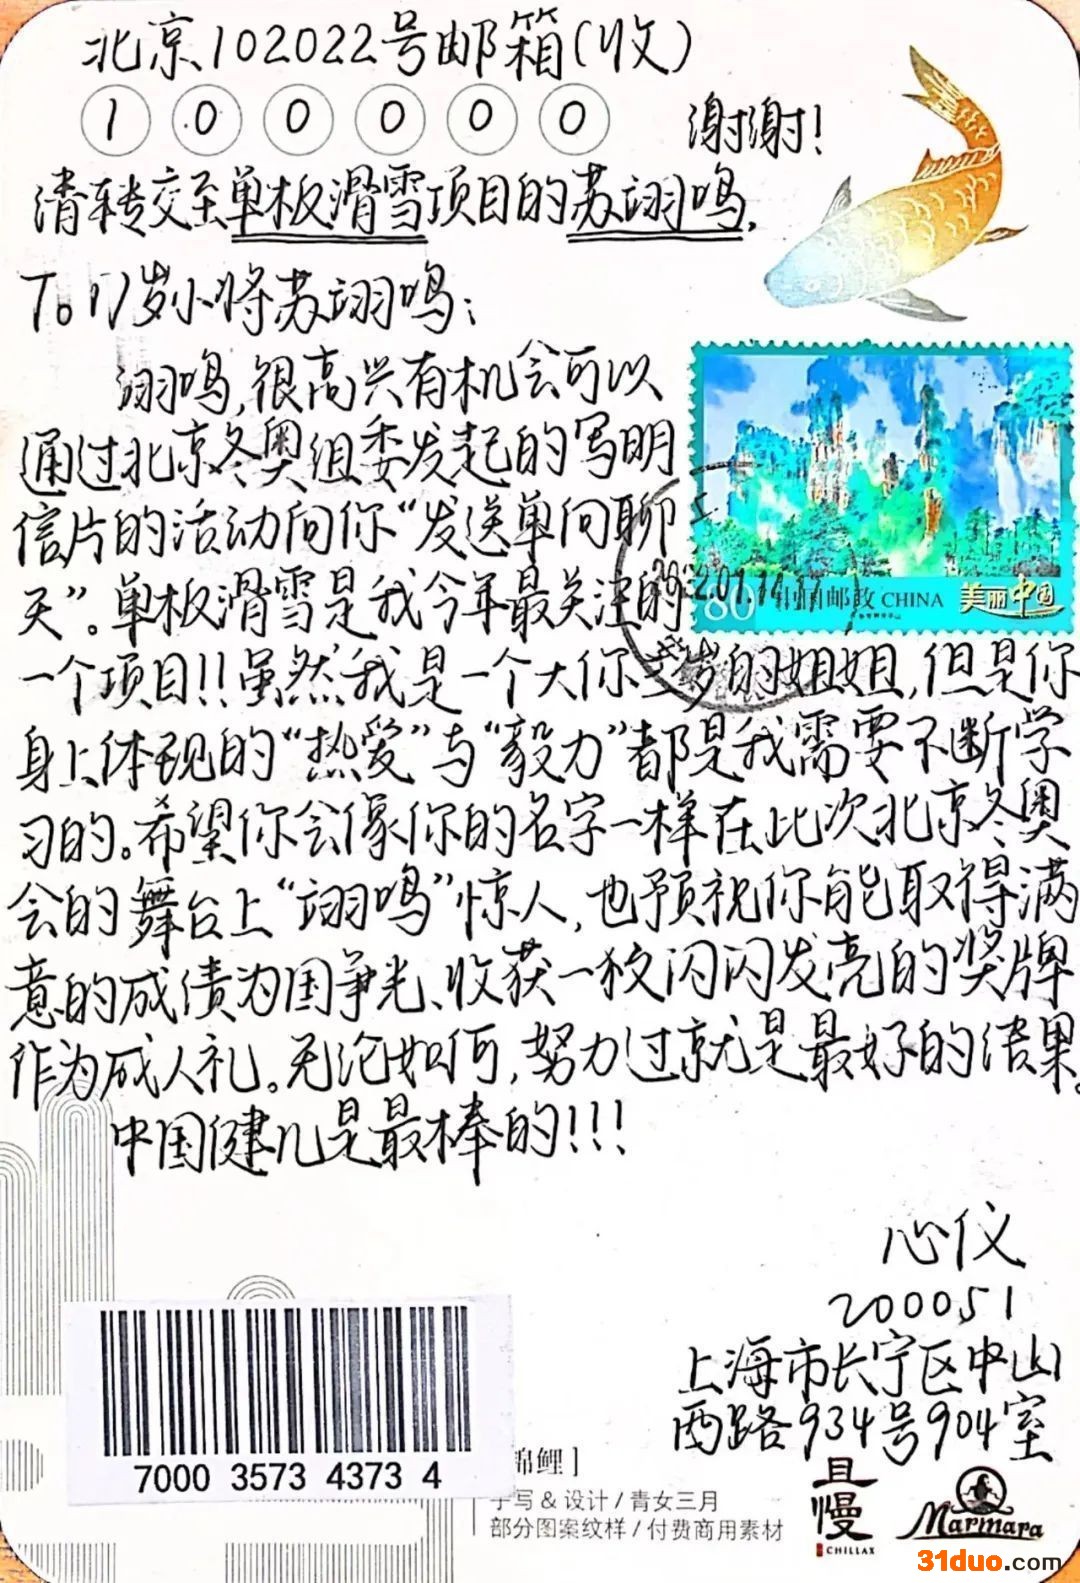 北京102022号邮箱(收)
100000
谢谢!
请转交至单板滑雪项目的苏翊鸣.
To 17岁小将苏翊鸣:
翊鸣,很高兴有机会可以
通过北京冬奥组委发起的写明
信片的活动向你“发送单向聊
天”。单板滑雪是我今年最关注的
一个项目!!虽然我是一个大你 岁的姐姐,但是你
身上体现的“热爱”与“毅力”都是我需要不断学
习的。希望你会像你的名字一样在此次北京冬奥
会的舞台上“翊鸣”惊人,也预祝你能取得满
意的成绩为国争光、收获一枚闪闪发亮的奖牌
作为成人礼。无论如何,努力过就是最好的结果。
中国健儿是最棒的!!!
80 中国邮政 CHINA 美丽中国
2022.01.14
心仪
200051
上海市长宁区中山
西路934号904室
7000 3573 4373 4
锦鲤]
手写 & 设计 / 青女三月
部分图案纹样 / 付费商用素材
且慢
CHILLAX
Marmara
31duo.com